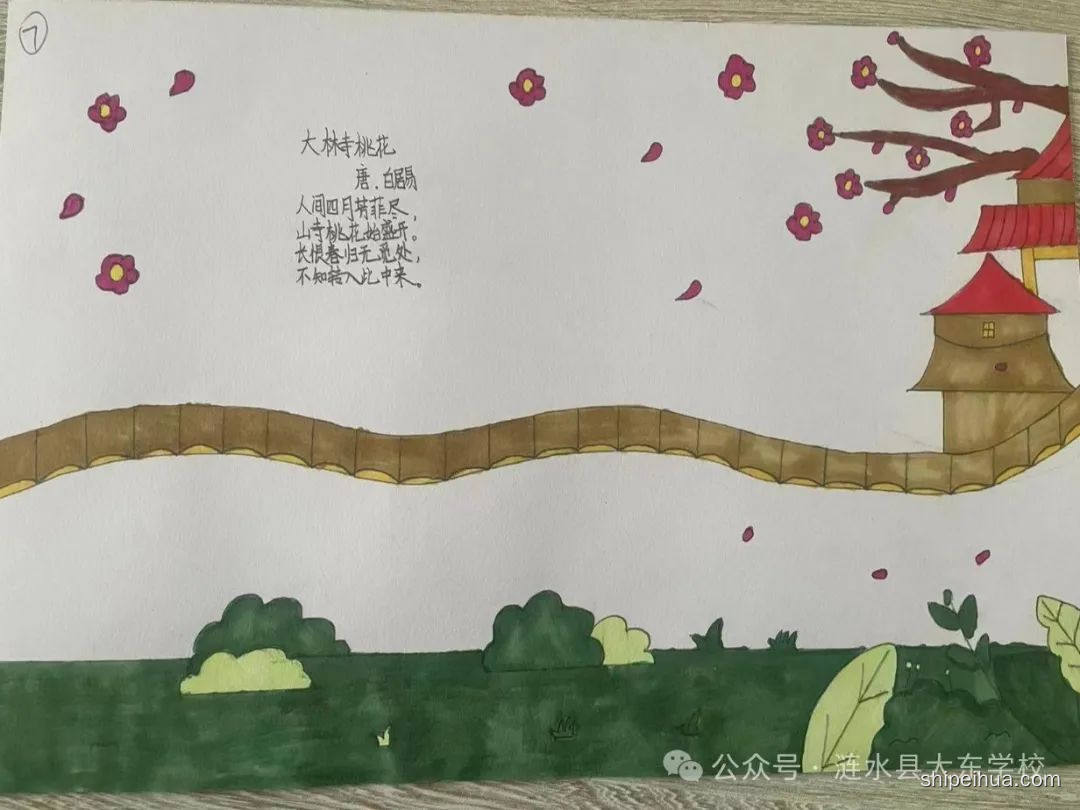 7
大林寺桃花
唐.白居易
人间四月芳菲尽,
山寺桃花始盛开。
长恨春归无觅处,
不知转入此中来。
公众号·涟水县大东学校
shipeihua.com